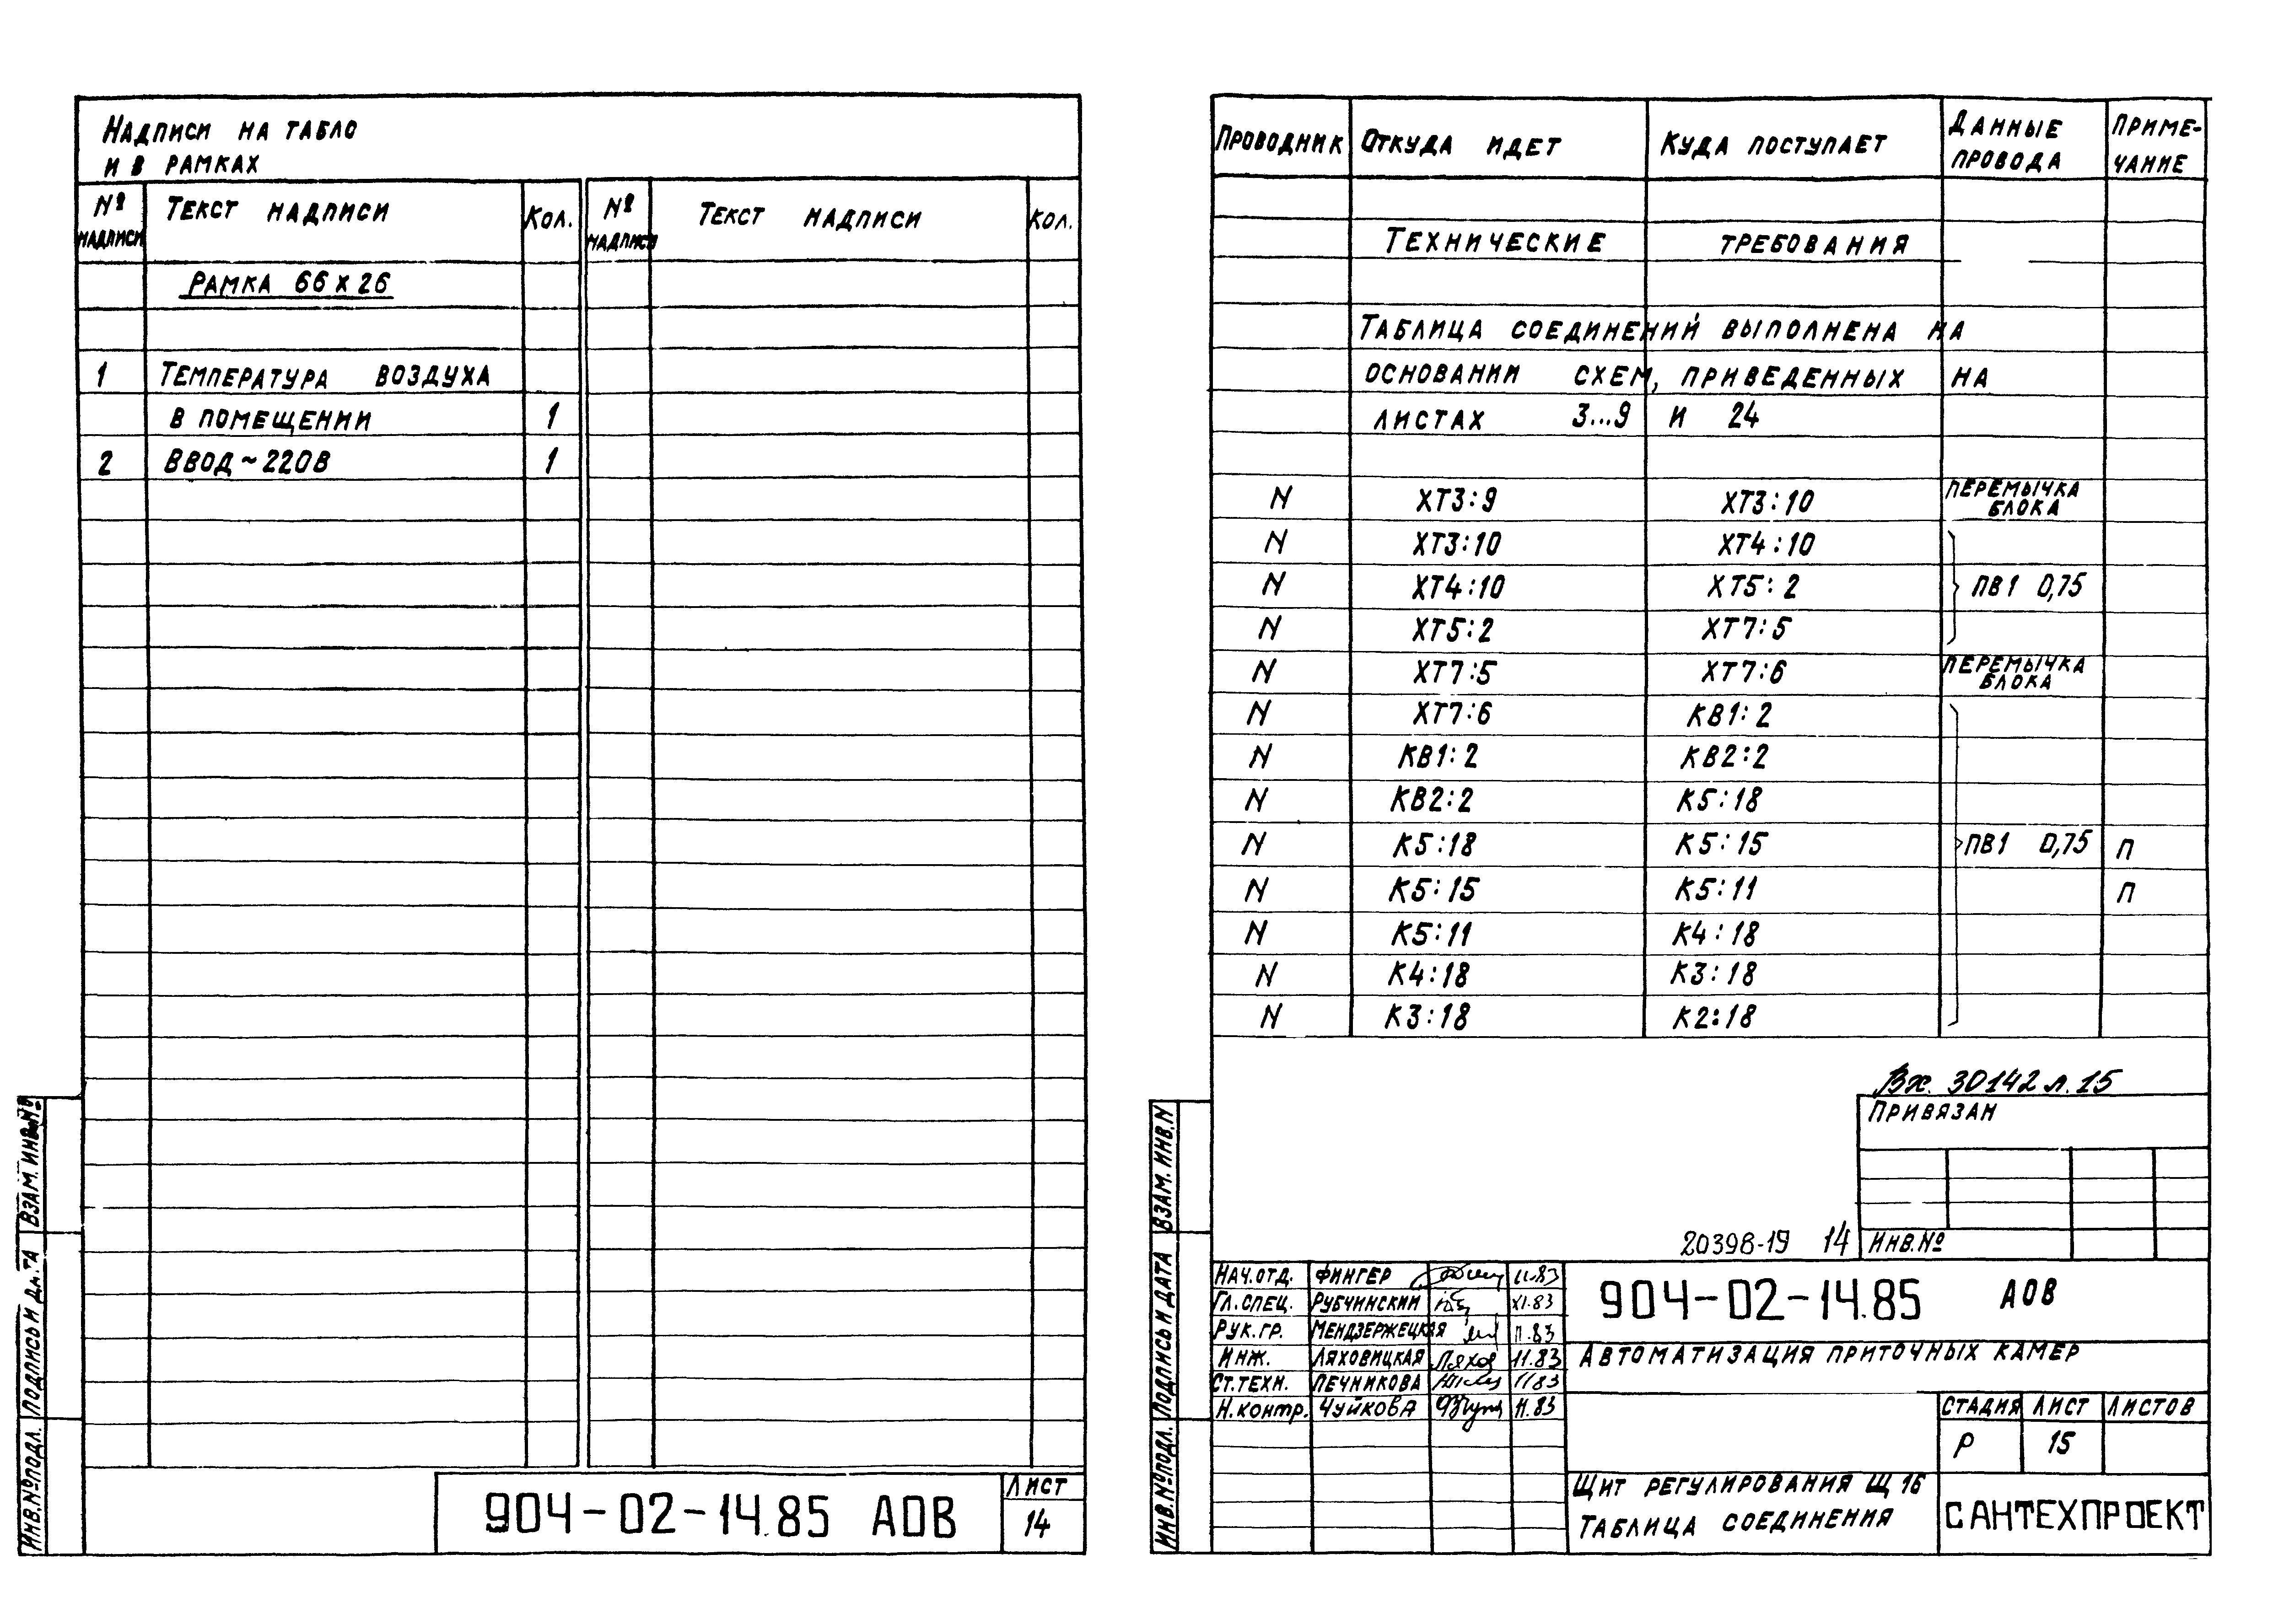 Надписи на табло
и в рамках
№ надписи Текст надписи Кол. № надписи Текст надписи Кол.
Рамка 66х26
1 Температура воздуха
в помещении 1
2 Ввод ~220В 1
Взам. инв. №
Подпись и дата
Инв. № подл.
904-02-14.85 АОВ
Лист
14
Проводник Откуда идет Куда поступает Данные провода Примечание
Технические требования
Таблица соединений выполнена на
основании схем, приведенных на
листах 3...9 и 24
N ХТ3:9 ХТ3:10 перемычка блока
N ХТ3:10 ХТ4:10
N ХТ4:10 ХТ5:2 ПВ1 0,75
N ХТ5:2 ХТ7:5
N ХТ7:5 ХТ7:6 перемычка блока
N ХТ7:6 КВ1:2
N КВ1:2 КВ2:2
N КВ2:2 К5:18
N К5:18 К5:15 ПВ1 0,75 п
N К5:15 К5:11 п
N К5:11 К4:18
N К4:18 К3:18
N К3:18 К2:18
Вх. 30142 л.15
Привязан
Инв.№
20398-19 14
Взам. инв. N
Подпись и дата
Инв. № подл.
Нач.отд. Фингер 11.83
Гл.спец. Рубчинский XI.83
Рук.гр. Мендзержецкая 11.83
Инж. Ляховицкая 11.83
Ст.техн. Печникова 11 83
Н.контр. Чуйкова 11.83
904-02-14.85 АОВ
Автоматизация приточных камер
Стадия Лист Листов
Р 15
Щит регулирования Щ 16
Таблица соединения
САНТЕХПРОЕКТ